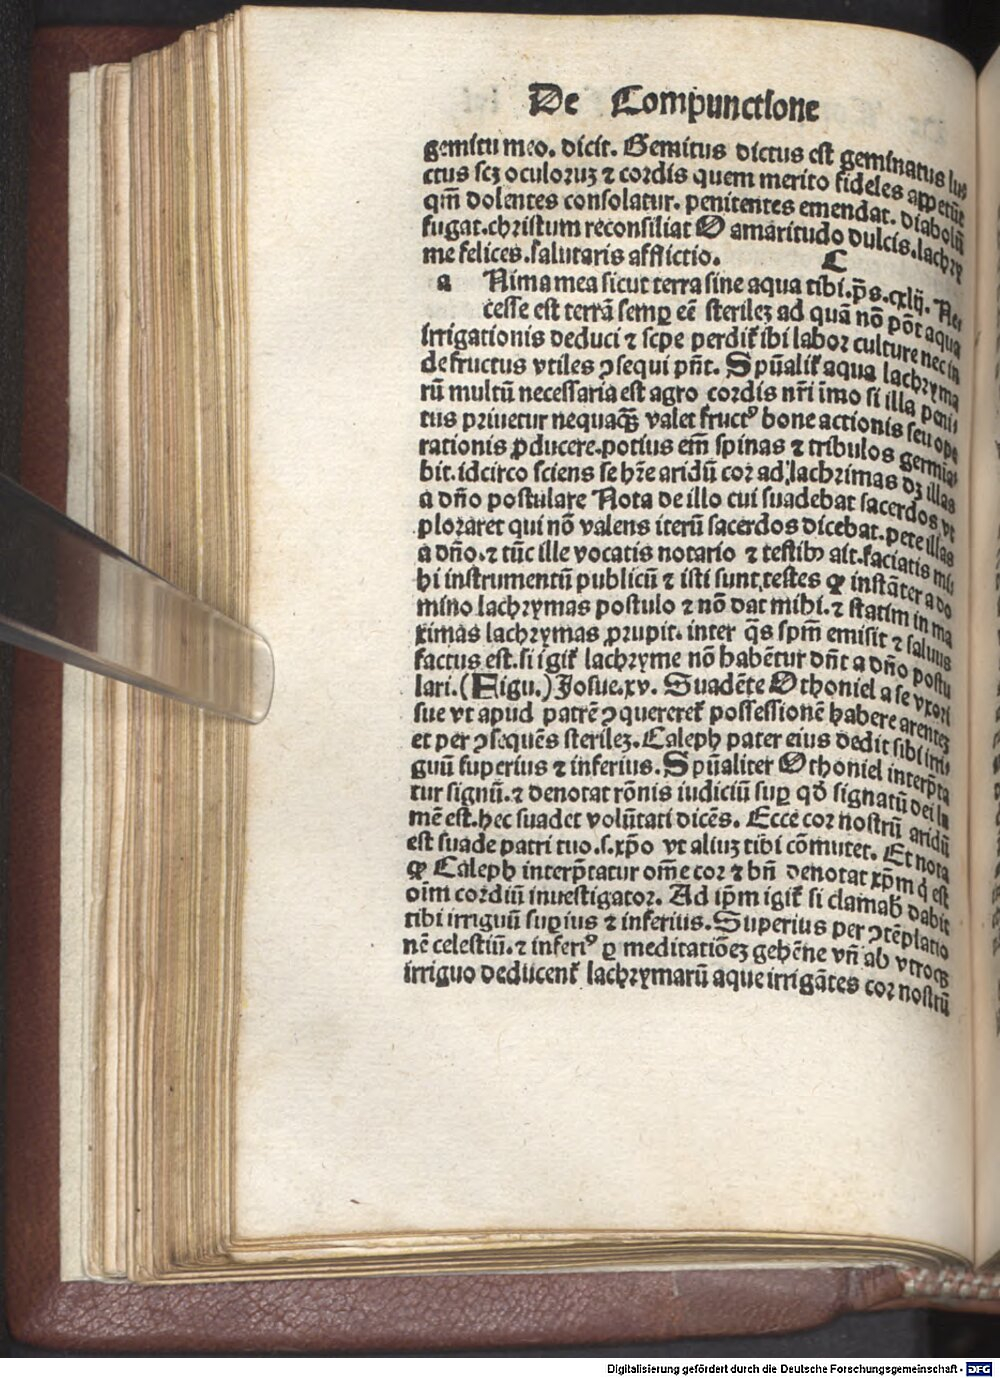 De Compunctione
gemitu meo. dicit. Gemitus dictus est geminatus luc
ctus scꝫ oculoruꝫ ⁊ cordis quem merito fideles appetūt
qm̄ dolentes consolatur. penitentes emendat. diabolū
fugat. christum reconsiliat O amaritudo dulcis. lachry
me felices. salutaris afflictio. C
a Nima mea sicut terra sine aqua tibi. p̄s. cxlij. Nec
cesse est terrā semꝑ eē sterileꝫ ad quā nō pōt aqua
irrigationis deduci ⁊ sepe perdit̄ ibi labor culture nec in
de fructus vtiles ꝯsequi pn̄t. Spūalit̄ aqua lachryma
rū multū necessaria est agro cordis nr̄i īmo si illa peni⸗
tus priuetur nequaqꝫ valet fructꝰ bone actionis seu ope
rationis ꝓducere. potius em̄ spinas ⁊ tribulos germia⸗
bit. idcirco sciens se hr̄e aridū cor ad lachrimas dꝫ illas
a dn̄o postulare Nota de illo cui suadebat sacerdos vt
ploraret qui nō valens iterū sacerdos dicebat. pete illas
a dn̄o. ⁊ tūc ille vocatis notario ⁊ testibꝫ ait. faciatis mi⸗
hi instrumentū publicū ⁊ isti sunt testes ꝙ instāter a do
mino lachrymas postulo ⁊ nō dat mihi. ⁊ statim in ma
ximas lachrymas ꝓrupit. inter q̄s spm̄ emisit ⁊ saluus
factus est. si igit̄ lachryme nō habētur dn̄t a dn̄o postu
lari. (Figu.) Josue. xv. Suadēte Othoniel a se vxori
sue vt apud patrē ꝯqueret̄ possessionē habere arenteꝫ
et per ꝯsequēs sterileꝫ. Caleph pater eius dedit sibi irri⸗
guū superius ⁊ inferius. Spūaliter Othoniel interp̄ta
tur signū. ⁊ denotat rōnis iudiciū suꝑ qd̄ signatū dei lu
mē est. hec suadet volūtati dicēs. Ecce cor nostrū aridū
est suade patri tuo. s. xp̄o vt aliuꝫ tibi cōmutet. Et nota
ꝙ Caleph interp̄tatur om̄e cor ⁊ bn̄ denotat xp̄m q̇ est
oīm cordiū inuestigator. Ad ip̄m igit̄ si clamab̄ dabit
tibi irriguū suꝑius ⁊ inferius. Superius per ꝯtēplatio
nē celestiū. ⁊ inferiꝰ ꝑ meditatiōeꝫ gehēne vn̄ ab vtroqꝫ
irriguo deducent̄ lachrymarū aque irrigātes cor nostrū
Digitalisierung gefördert durch die Deutsche Forschungsgemeinschaft - DFG